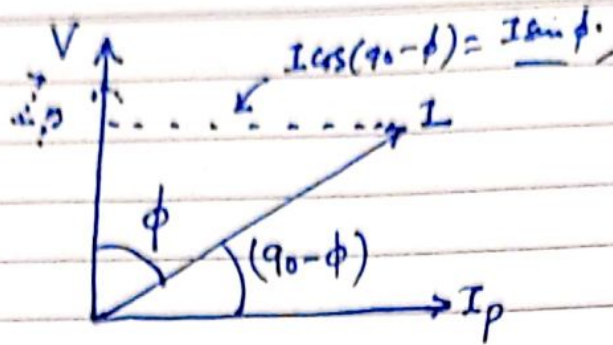 V
I cos(90-ϕ) = I sin ϕ.
I
ϕ
(90-ϕ)
Iₚ